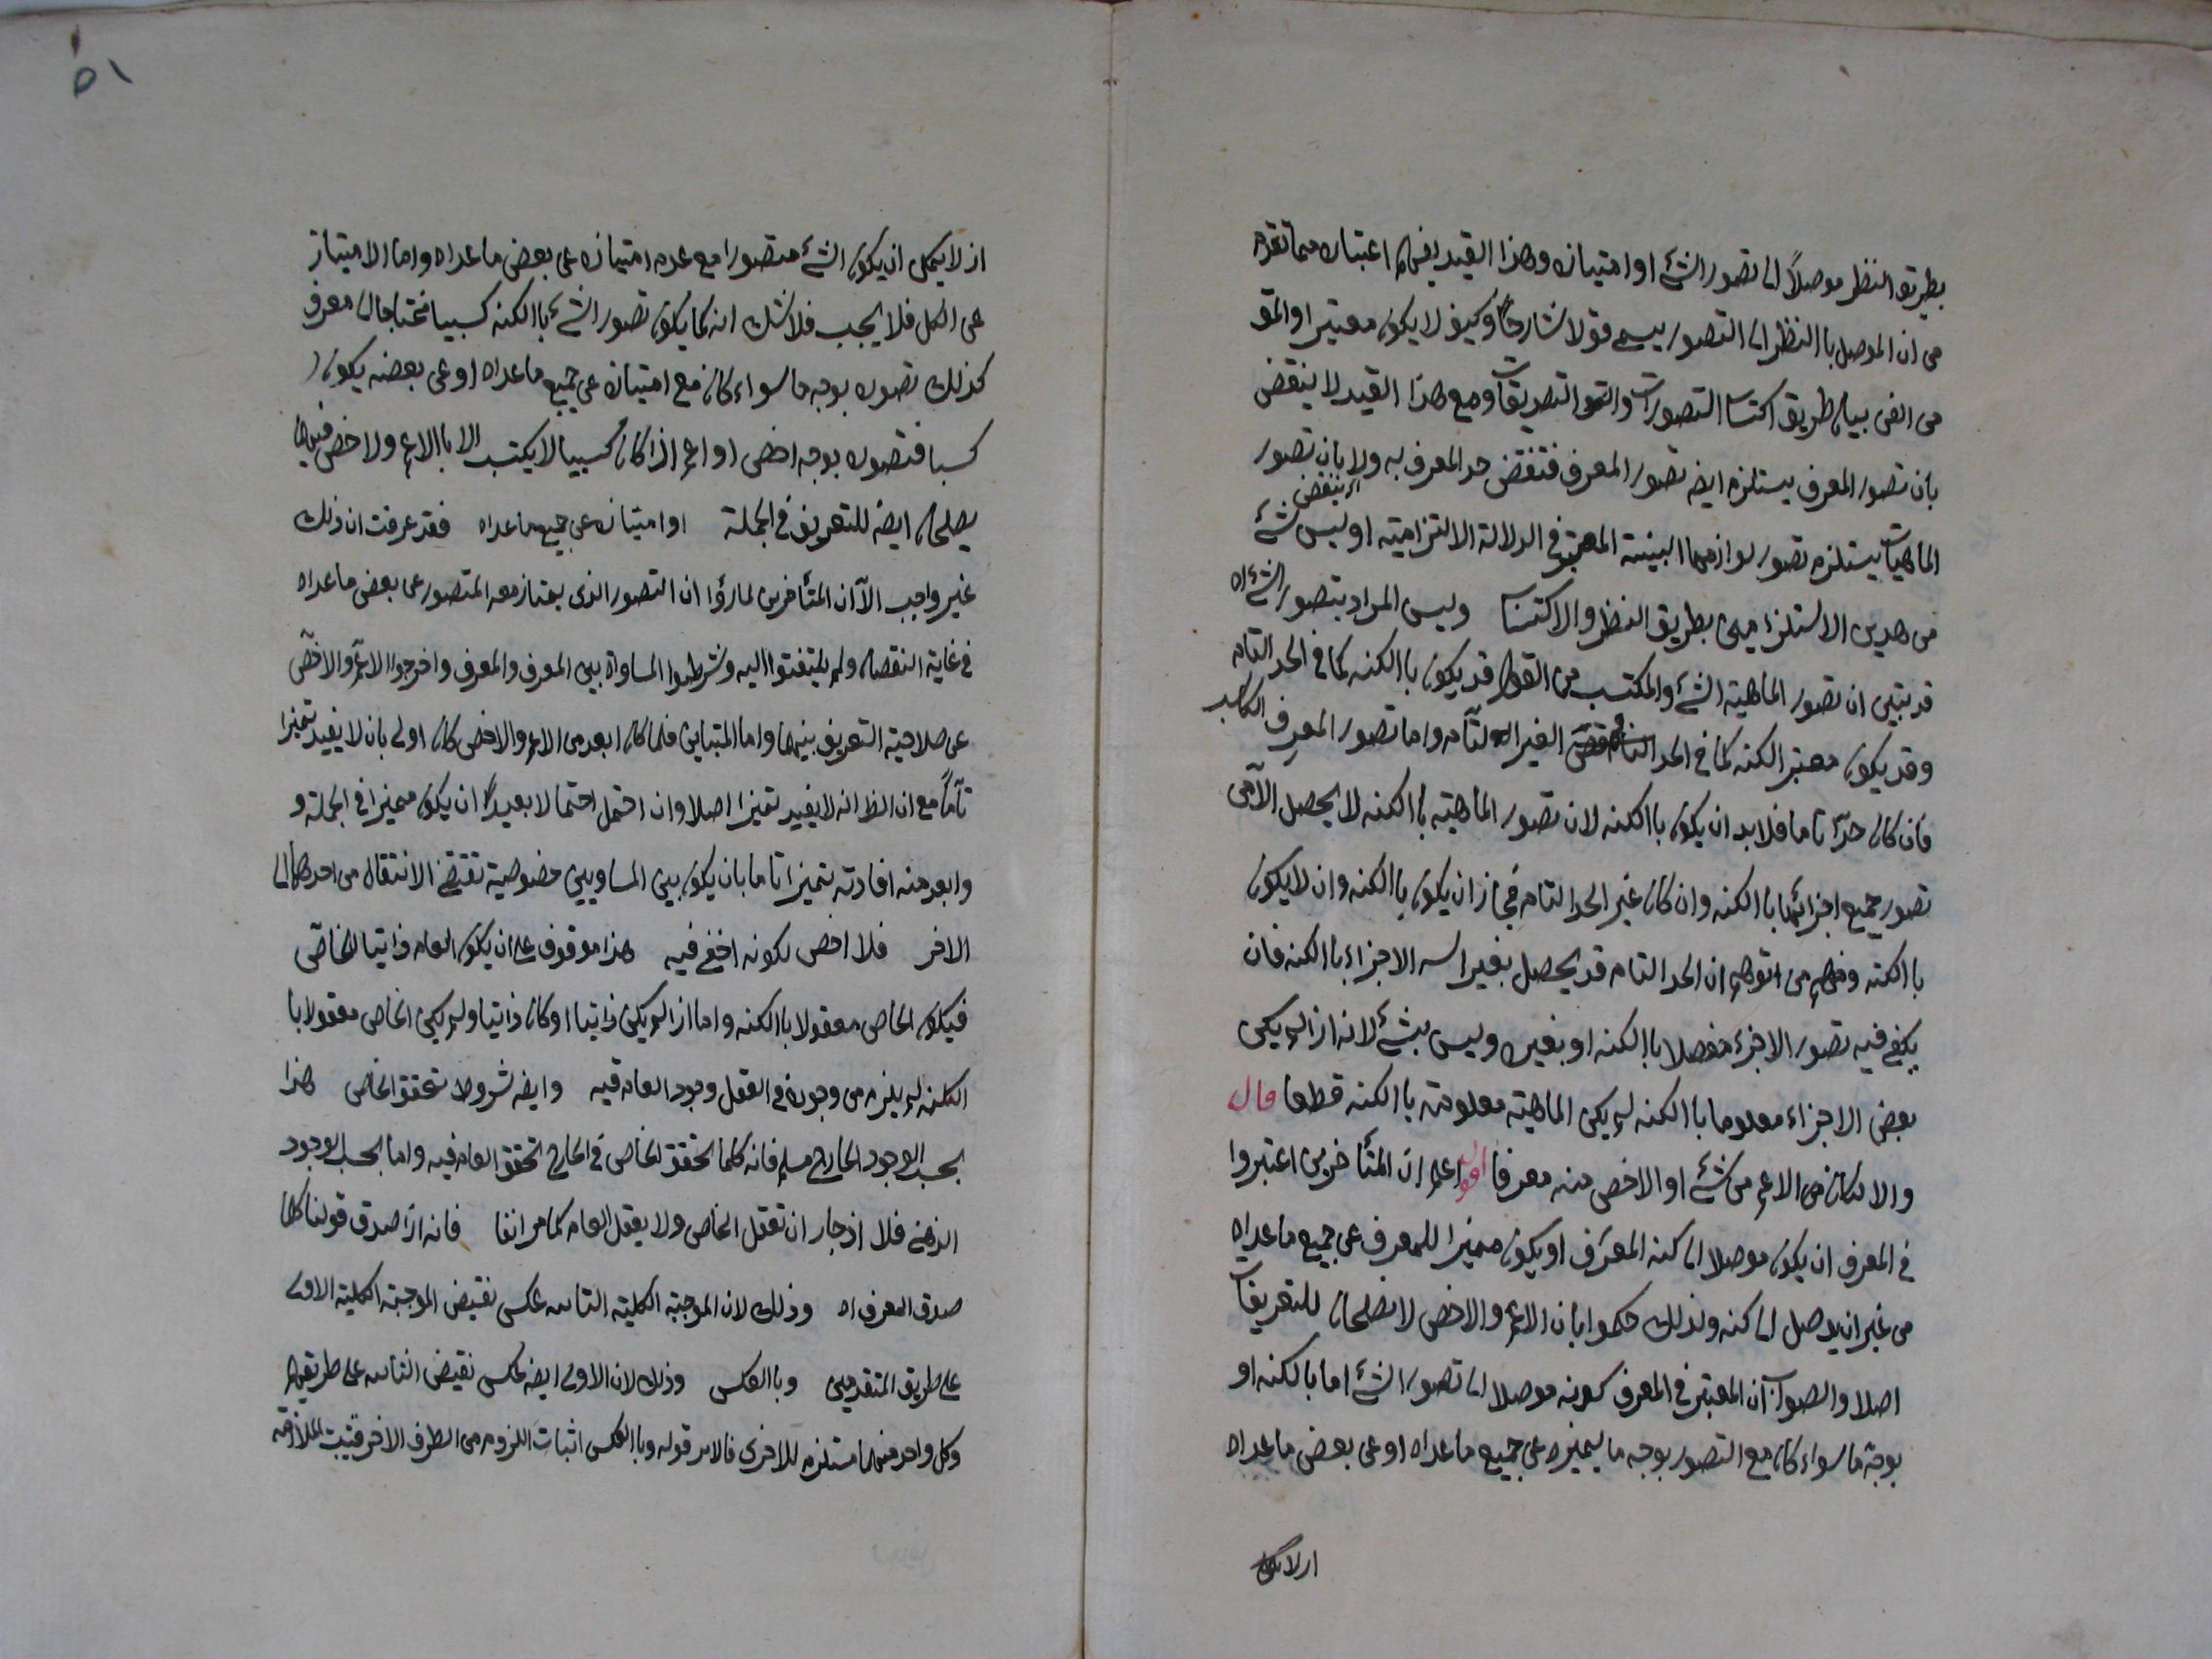 بطريق النظر موصلاً الى تصور الشئ او امتيازه وهذا القيد يفهم اعتباره مما تقدم
من ان الموصل باالنظر الى التصور يسمى قولا شارحاً وكيف لا يكون معتبرا والمق
من الفن بيان طريق اكتساب التصورات والتصديقات ومع هذا القيد لا ينقض
بان تصور المعرف يستلزم ايضه تصور المعرف فتنقض حد المعرف به ولا بان تصور
ينقض
الماهيات يستلزم تصور لوازمها البينة المعتبرة في الدلالة الالتزامية اذ ليس شئ
من هذين الاستلزامين بطريق النظر والاكتساب وليس المراد بتصور الشئ اه
قد تبين ان تصور الماهية الشئ والمكتسب من القول قد يكون باالكنه كما في الحد التام
وقد يكون بغير الكنه كما في الحد الغير التام واما تصور المعرف الكاسب
فان كان حدّا تاما فلا بد ان يكون باالكنه لان تصور الماهية باالكنه لا يحصل الآ من
تصور جميع اجزائها باالكنه وان كان غير الحد التام فجاز ان يكون باالكنه وان لا يكون
باالكنه ومنهم من توهم ان الحد التام قد يحصل بغير الاجزاء باالكنه فان
يكفي فيه تصور الاجزاء مفصلا باالكنه او بغيره وليس بشئ لانه اذا لم يكن
بعض الاجزاء معلوما باالكنه لم يكن الماهية معلومة باالكنه قطعا قال
والا لكان من الاعم من شئ او الاخص منه معرفا اقول اعلم ان المتأخرين اعتبروا
في المعرف ان يكون موصلا الى كنه المعرَّف او يكون مميزا للمعرف عن جميع ماعداه
من غير ان يوصل الى كنه ولذلك حكموا بان الاعم والاخص لا يصلحان للتعريفات
اصلا والصواب ان المعتبر في المعرف كونه موصلا الى تصور الشئ اما بالكنه او
بوجه ما سواء كان مع التصور بوجه ما يميزه عن جميع ماعداه او عن بعض ماعداه
اذ لا يمكن
٥١
اذ لا يمكن ان يكون الشئ متصورا مع عدم امتيازه عن بعض ماعداه واما الامتياز
عن الكل فلا يجب فلا شك انه كما يكون تصور الشئ باالكنه كسبيا محتاجا الى معرف
كذلك تصوره بوجه ما سواء كان مع امتيازه عن جميع ماعداه او عن بعضه يكون
كسبا فتصوره بوجه اخص او اعم اذا كان كسبيا لا يكتسب الا باالاعم ولاخص فهما
يصلحان ايضه للتعريف في الجملة او امتيازه عن جميع ماعداه فقد عرفت ان ذلك
غير واجب الآ ان المتأخرين لما رؤا ان التصور الذى يمتاز معه المتصور عن بعض ماعداه
في غاية النقصان ولم يلتفتوا اليه وشرطوا المساواة بين المعرف والمعرف واخرجوا الاعمّ والاخصّ
عن صلاحية التعريف بينهما واما المتباين فلما كان ابعد من الاعم والاخص كان اولى بان لا يفيد تميزا
تآمّا مع ان الظ انه لا يفيد تميزا اصلا وان احتمل احتمالا بعيداً ان يكون مميزا في الجملة و
وابعد منه افادته تميزا تاما بان يكون بين المساويين خصوصية تقتضى الانتقال من احدهما الى
الاخر فلا اخص لكونه اخفى فيه هذا موقوف على ان يكون العام ذاتيا لخاصّ
فيكون الخاص معقولا باالكنه واما اذا لم يكن ذاتيا او كان ذاتيا ولم يكن الخاص معقولا با
الكنه لم يلزم من وجوده في العقل وجود العام فيه وايضه شروط تحقق الخاص هذا
بحسب الوجود الخارجى مسلم فانه كلما تحقق الخاص في الخارج تحقق العام فيه واما بحسب الوجود
الذهنى فلا اذ جاز ان تعقل الخاص ولا يعقل العام كما مر انفا فانه اذا صدق قولنا كلما
صدق المعرف اه وذلك لان الموجبة الكلية الثانيه عكس نقيض الموجبة الكلية الاولى
على طريق المتقدمين وباالعكس وذلك لان الاولى ايضه عكس نقيض الثانيه على طريقهم
وكل واحد منهما مستلزم للاخرى فالامر قوله وباالعكس اثبات اللزوم من الطرف الاخر فتثبت الملازمة